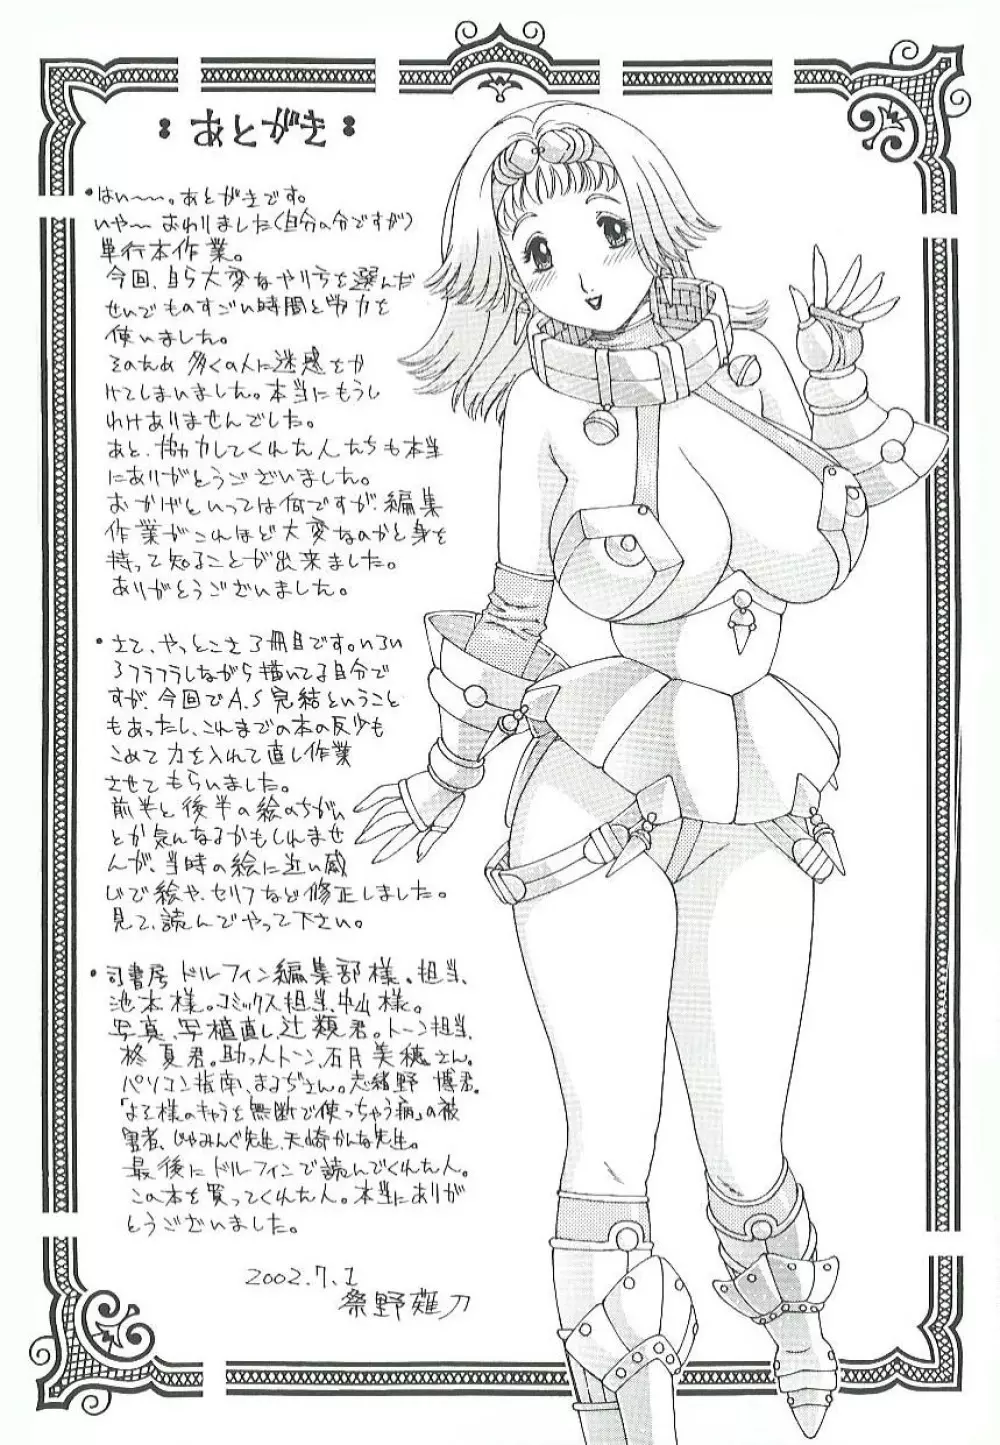 ：あとがき：
・はい〜〜。あとがきです。
いや〜おわりました(自分の分ですが)
単行本作業。
今回、自ら大変なやり方を選んだ
せいでものすごい時間と労力を
使いました。
そのため多くの人に迷惑をか
けてしまいました。本当にもうし
わけありませんでした。
あと、協力してくれた人たちも本当
にありがとうございました。
おかげといっては何ですが、編集
作業がこれほど大変なのかと身を
持って知ることが出来ました。
ありがとうございました。
・さて、やっとこさ3冊目です。いろい
ろフラフラしながら描いてる自分で
すが、今回でA.S完結ということ
もあったし、これまでの本の反少も
こめて力を入れて直し作業
させてもらいました。
前半と後半の絵のちがい
とか気んなるかもしれませ
んが、当時の絵に近い感
じで絵や、セリフなど修正しました。
見て、読んでやって下さい。
・司書房 ドルフィン編集部様。担当、
池本様。コミックス担当、中山様。
写真、写植直し、辻 類君。トーン担当、
柊 夏君。助っ人トーン、石月美穂さん。
パソコン指南、まるぢさん。志緒野 博君。
「よそ様のキャラを無断で使っちゃう病」の被
害者、じゃみんぐ先生、天崎かんな先生。
最後にドルフィンで読んでくれた人。
この本を買ってくれた人。本当にありが
とうございました。
2002.7.1
祭野薙刀